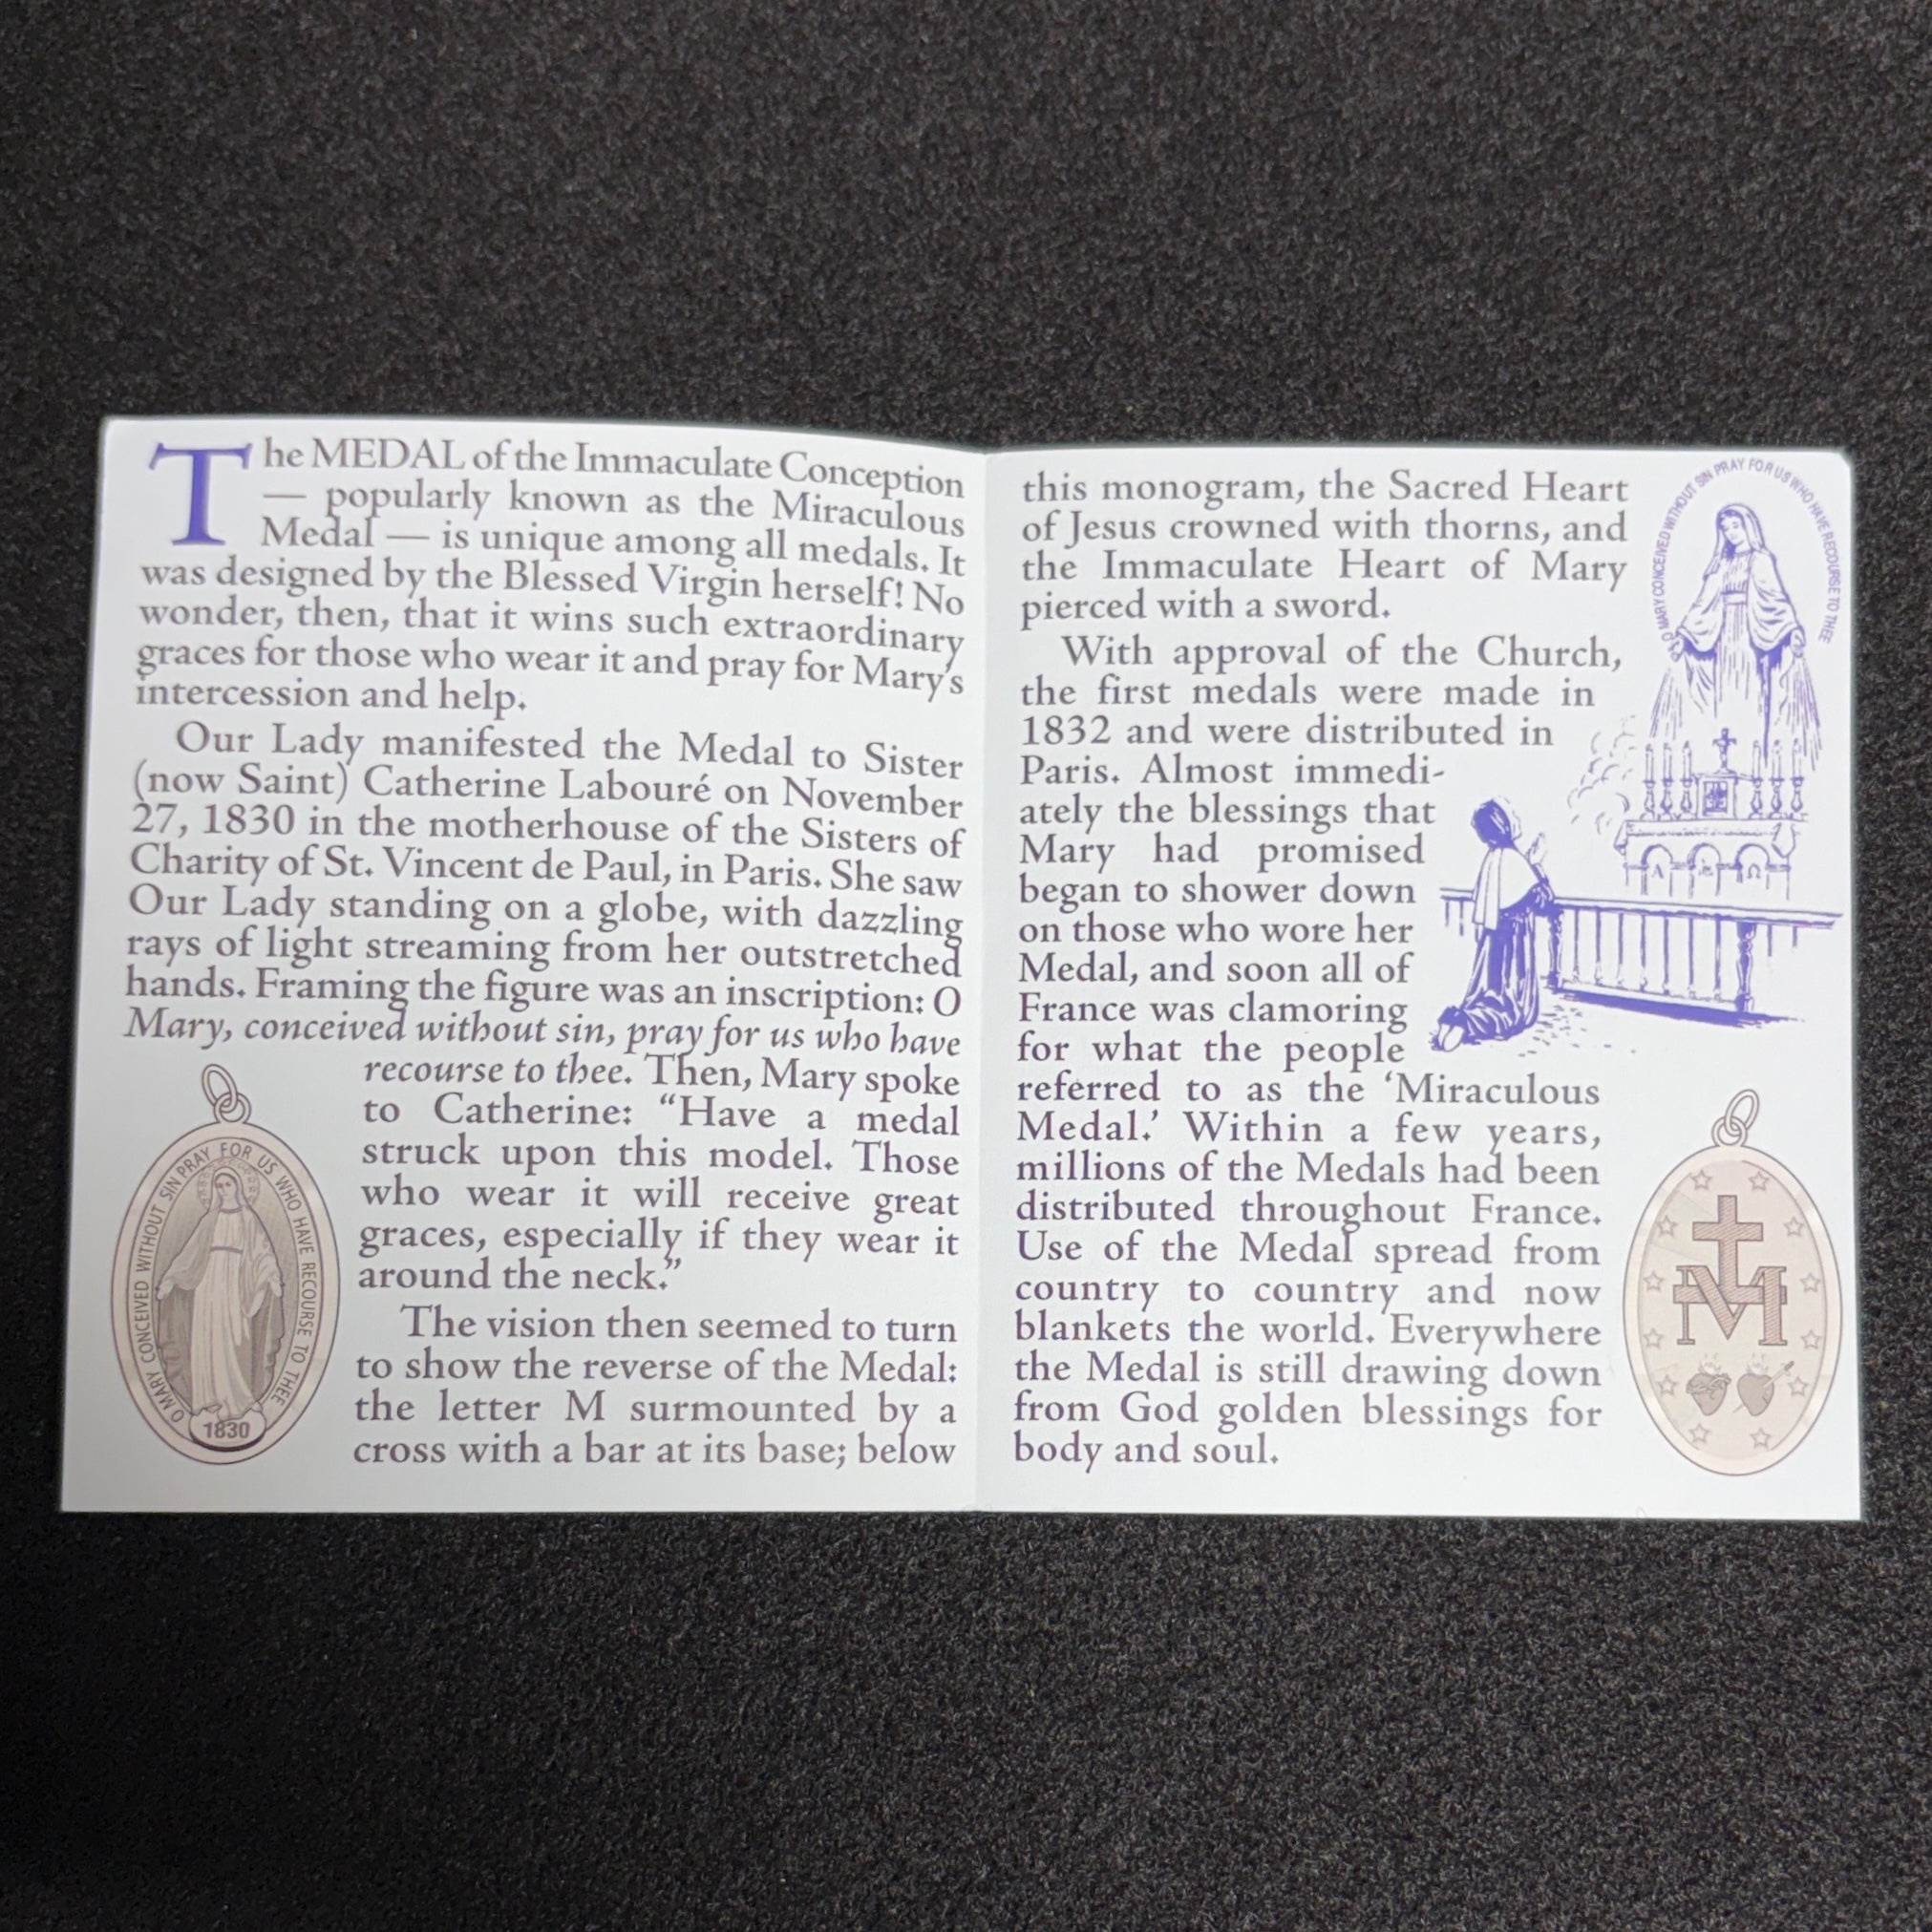 The MEDAL of the Immaculate Conception
— popularly known as the Miraculous
Medal — is unique among all medals. It
was designed by the Blessed Virgin herself! No
wonder, then, that it wins such extraordinary
graces for those who wear it and pray for Mary's
intercession and help.
Our Lady manifested the Medal to Sister
(now Saint) Catherine Labouré on November
27, 1830 in the motherhouse of the Sisters of
Charity of St. Vincent de Paul, in Paris. She saw
Our Lady standing on a globe, with dazzling
rays of light streaming from her outstretched
hands. Framing the figure was an inscription: O
Mary, conceived without sin, pray for us who have
recourse to thee. Then, Mary spoke
to Catherine: “Have a medal
struck upon this model. Those
who wear it will receive great
graces, especially if they wear it
around the neck.”
The vision then seemed to turn
to show the reverse of the Medal:
the letter M surmounted by a
cross with a bar at its base; below
O MARY CONCEIVED WITHOUT SIN PRAY FOR US WHO HAVE RECOURSE TO THEE
1830
this monogram, the Sacred Heart
of Jesus crowned with thorns, and
the Immaculate Heart of Mary
pierced with a sword.
With approval of the Church,
the first medals were made in
1832 and were distributed in
Paris. Almost immedi-
ately the blessings that
Mary had promised
began to shower down
on those who wore her
Medal, and soon all of
France was clamoring
for what the people
referred to as the ‘Miraculous
Medal.’ Within a few years,
millions of the Medals had been
distributed throughout France.
Use of the Medal spread from
country to country and now
blankets the world. Everywhere
the Medal is still drawing down
from God golden blessings for
body and soul.
O MARY CONCEIVED WITHOUT SIN PRAY FOR US WHO HAVE RECOURSE TO THEE
M